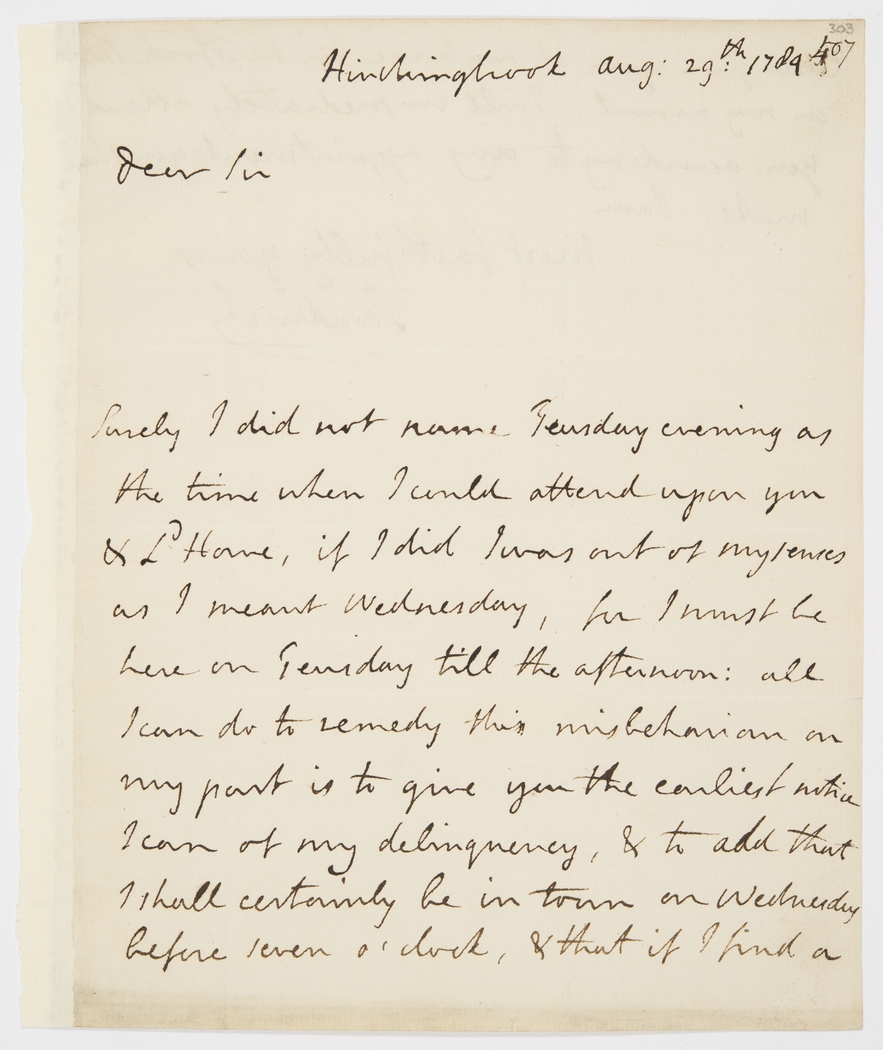 303
Hinchingbrook aug: 29:th 1789
407
Dear Sir
Surely I did not name Teusday evening as
the time when I could attend upon you
& Ld Howe, if I did I was out of my senses
as I meant Wednesday, for I must be
here on Teusday till the afternoon: all
I can do to remedy this misbehaviour on
my part is to give you the earliest notice
I can of my delinquency, & to add that
I shall certainly be in town on Wednesday
before seven o'clock, & that if I find a